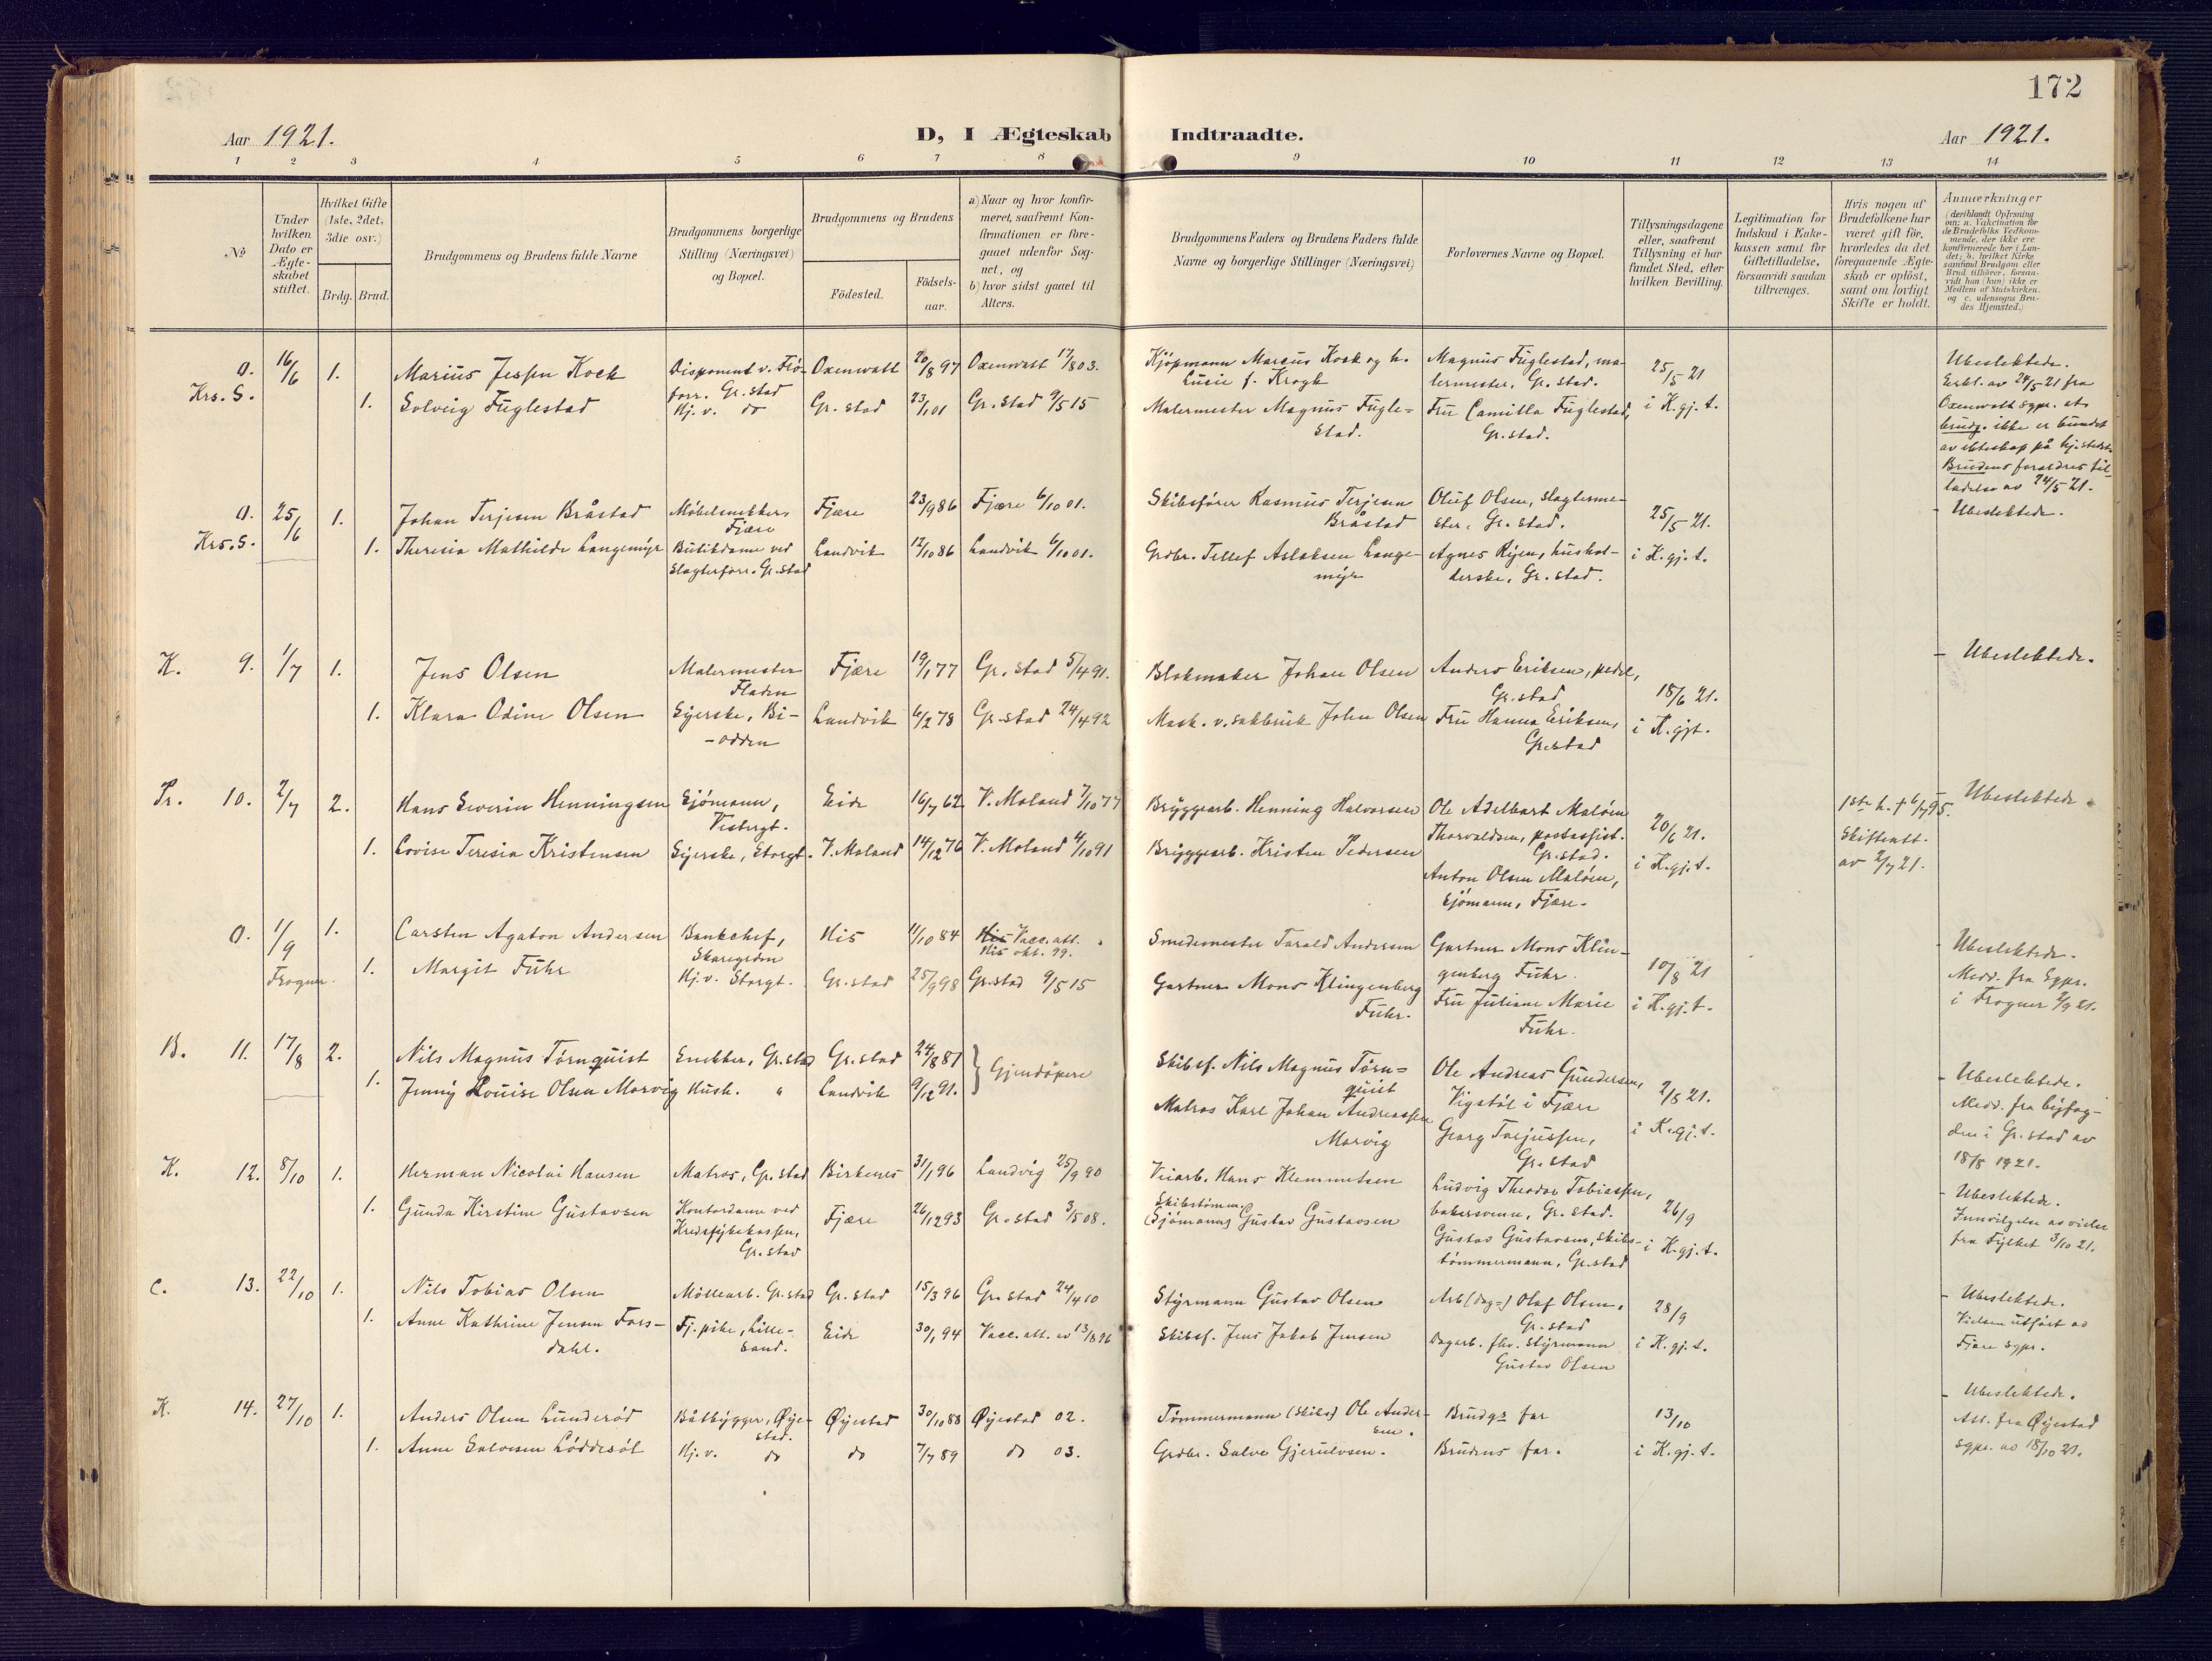 172
Aar 1921.
D, I Ægteskab Indtraadte.
Aar 1921.
1 2 3 4 5 6 7 8 9 10 11 12 13 14
No
Under hvilken Dato er Ægteskabet stiftet.
Hvilket Gifte (1ste, 2det, 3die osv.)
Brdg. Brud.
Brudgommens og Brudens fulde Navne
Brudgommens borgerlige Stilling (Næringsvei) og Bopæl.
Brudgommens og Brudens
Födested.
Födsels-aar.
a) Naar og hvor konfirmeret, saafremt Konfirmationen er foregaaet udenfor Sognet, og
b) hvor sidst gaaet til Alters.
Brudgommens Faders og Brudens Faders fulde Navne og borgerlige Stillinger (Næringsvei)
Forlovernes Navne og Bopæl.
Tillysningsdagene eller, saafremt Tillysning ei har fundet Sted, efter hvilken Bevilling.
Legitimation for Indskud i Enkekassen samt for Giftetilladelse, forsaavidt saadan tiltrænges.
Hvis nogen af Brudefolkene har været gift för, hvorledes da det foregaaende Ægteskab er oplöst, samt om lovligt Skifte er holdt.
Anmærkninger
(deriblandt Oplysning om: a. Vakcination for de Brudefolks Vedkommende, der ikke ere konfirmerede her i Landet; b. hvilket Kirkesamfund Brudgom eller Brud tilhörer, forsaavidt han (hun) ikke er Medlem af Statskirken. og c. udensogns Brudes Hjemsted.)
0. 16/6 1. Marius Jessen Kock Disponent v. Frö- Oxenwatt 20/8 97 Oxenwatt 17/8 03. Kjöpmann Marcus Kock og h. Magnus Fuglestad, ma- 25/5 21 Ubeslektede.
Krs. S. forr. Gr.stad Lucie f. Krogh lermester, Gr.stad. Erkl. av 24/5 21 fra
1. Solveig Fuglestad Hj. v. do Gr.stad 23/1 01 Gr.stad 9/5 15 Malermester Magnus Fugle- Fru Camilla Fuglestad, i K.gj.t. Oxenwatt sgpr. at
stad. Gr.stad. brudg. ikke er bundet
av ekteskap på hj.stedet.
Brudens forældres til-
ladelse av 24/5 21.
0. 25/6 1. Johan Terjesen Bråstad Möbelsnekker, Fjære 23/9 86 Fjære 6/10 01. Skibsförer Rasmus Terjesen Oluf Olsen, slagterme- 25/5 21. - Ubeslektede.
Krs.S. Fjære Bråstad ster, Gr.stad.
1. Theresia Mathilde Langemyr Butikdame ved Landvik 12/10 86 Landvik 6/10 01. Grdbr. Tellef Aslaksen Lange- Agnes Rijen, hushol- i K.gj.t.
slagterforr. Gr.stad myr derske, Gr.stad.
K. 9. 1/7 1. Jens Olsen Malermester Fjære 19/1 77 Gr.stad 5/4 91. Blokmaker Johan Olsen Anders Eriksen, pedel, 18/6 21. - Ubeslektede.
Fladen Gr.stad
1. Klara Odine Olsen Syerske, Bi- Landvik 6/2 78 Gr.stad 24/4 92 Mask. v. sakbruk John Olsen Fru Hanna Eriksen, i K.gjt.
-odden Gr.stad
Pr. 10. 2/7 2. Hans Severin Henningsen Sjömann, Eide 16/7 62 V.Moland 7/10 77 Bryggearb. Henning Halvorsen Ole Adelbart Malöen 20/6 21. 1ste h. † 6/7 95. Ubeslektede.
Vestergt. Thorvaldsen, postassist. Skifteatt.
1. Lovise Teresia Kristensen Syerske, Storgt. V.Moland 14/12 76 V.Moland 4/10 91 Bryggearb. Kristen Pedersen Gr.stad. i K.gj.t. av 2/7 21.
Anton Olsen Malöen,
Sjömann, Fjære.
0. 1/9 1. Carsten Agaton Andersen Bankchef, His 11/10 84 His Vacc. att. Smedemester Tarald Andersen Gartner Mons Klin- 10/8 21 - Ubeslektede.
Frogner. Skaregröm His okt. 99. genberg Fuhr. Medd. fra Sgpr.
1. Margit Fuhr Hj.v. Storgt. Gr.stad 25/9 98 Gr.stad 9/5 15 Gartner Mons Klingenberg Fru Juliane Marie i K.gj.t. i Frogner 2/9 21.
Fuhr. Fuhr.
B. 11. 17/8 2. Nils Magnus Törnquist Snekker, Gr.stad Gr.stad 24/8 81 } Gjendöpere Skibsf. Nils Magnus Törn- Ole Andreas Gundersen, 2/8 21. - Ubeslektede.
quist Vigstöl i Fjære Medd. fra byfog-
1. Jenny Louise Olsen Morvig Hush. " Landvik 9/12 91. Matros Karl Johan Andreassen Georg Terjussen, i K.gj.t. den i Gr.stad av
Morvig Gr.stad 18/8 1921.
K. 12. 8/10 1. Herman Nicolai Hansen Matros, Gr.stad Birkenes 31/1 96 Landvig 25/9 90 Veiarb. Hans Klemmetsen Ludvig Theodor Tobiassen, 26/9 - Ubeslektede.
Skibstömm. bakersvenn, Gr.stad. Innvilgelse av vielse
1. Gunda Kirstine Gustavsen Kontordame ved Fjære 26/12 93 Gr.stad 3/5 08. (Sjömann) Gustav Gustavsen Gustav Gustavsen, skibs- i K.gj.t. fra Fylket 3/10 21.
Kredssykekassen, tömmermann, Gr.stad
Gr.stad
C. 13. 22/10 1. Nils Tobias Olsen Möllearb. Gr.stad Gr.stad 15/3 96 Gr.stad 24/4 10 Styrmann Gustav Olsen Arb (dag=) Olaf Olsen, 28/9 - Ubeslektede.
Gr.stad Vielsen utfört av
1. Anne Kathrine Jensen Fors- Tj.pike, Lille- Eide 30/1 94 Vacc. att. av 13/8 96 Skibsf. Jens Jakob Jensen Dagarb. fhv. styrmann i K.gj.t. Fjære sgpr.
dahl. sand. Gustav Olsen
K. 14. 27/10 1. Anders Olsen Lunderöd Båtbygger, Öye- Öyestad 30/10 88 Öyestad 02. Tömmermann (skibs) Ole Ander- Brudgs far 13/10 - Ubeslektede.
stad. sen. Att. fra Öyestad
1. Anne Salvesen Löddesöl Hj.v. do do 7/7 89 do 03. Grdbr. Salve Gjerulvsen. Brudens far. i K.gj.t. sgpr. av 18/10 21.